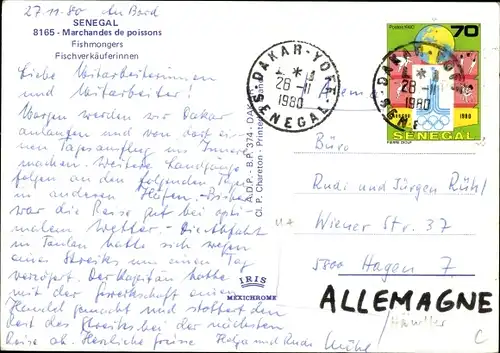 27.11.80 An Bord
SENEGAL
8165 - Marchandes de poissons
Fishmongers
Fischverkäuferinnen
Liebe Mitarbeiterinnen
und Mitarbeiter!
Morgen werden wir Dakar
anlaufen und von dort ei-
nen Tagesausflug ins Innere
machen. Weitere Landgänge
folgen an den folgenden Tagen
in anderen Häfen. Bisher
war die Reise gut bei opti-
malem Wetter. Die Abfahrt
in Toulon hatte sich wegen
eines Streiks um einen Tag
verzögert. Der Kapitän hatte
mit der Gewerkschaft einen
Handel gemacht und
den Rest des Streiks bei der nächsten
Reise ab. Herzliche Grüsse Helga und Rudi Rühl
A.D.P. - B.P. 374 - DAKAR
Cl. P. Chareton - Printed
IRIS
MEXICHROME
DAKAR-YOFF
28-11
1980
SENEGAL
DAKAR-YOFF
28-11
1980
Postes 1980
70
1980
SENEGAL
Firma
Büro
Rudi und Jürgen Rühl
Wiener Str. 37
5800 Hagen 7
ALLEMAGNE
Händler
C